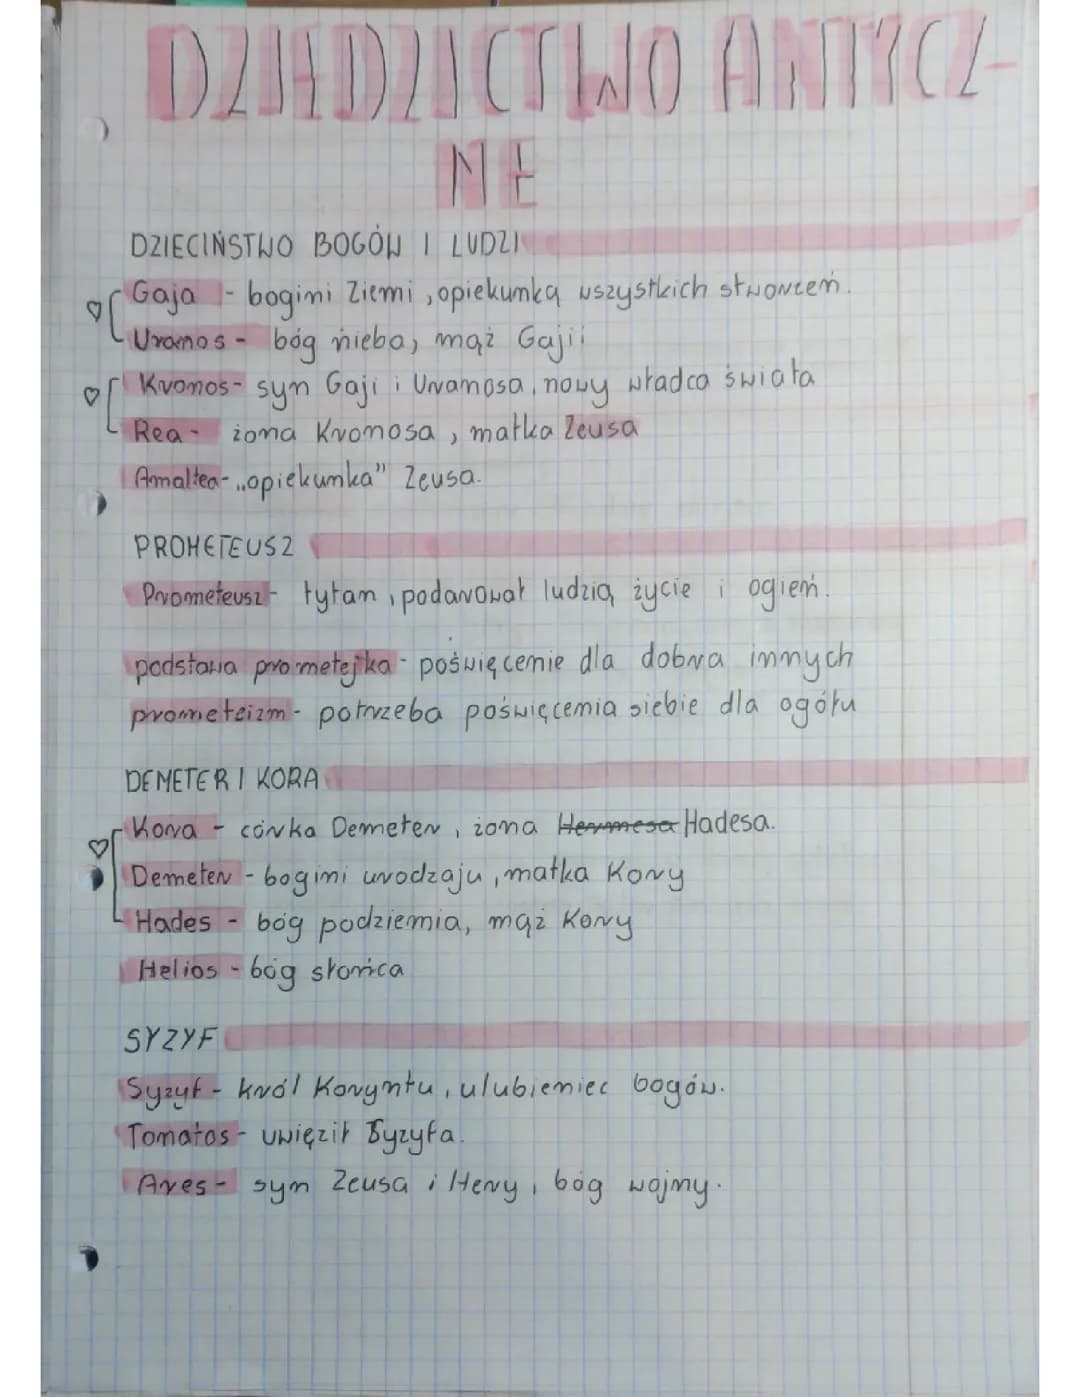 DZIEDZICTWO ANTYCZ-
NE
DZIECIŃSTWO BOGÓW I LUDZI
Gaja - bogini Ziemi, opiekunką wszystkich stworzeń.
Uranos - bóg nieba, mąż Gajii
Kronos- syn Gaji i Uranosa, nowy władca świata
Rea - żona Kronosa, matka Zeusa
Amaltea- „opiekunka" Zeusa.
PROMETEUSZ
Prometeusz- tytan, podarował ludzią życie i ogień.
postawa prometejska - poświęcenie dla dobra innych
prometeizm - potrzeba poświęcenia siebie dla ogółu
DEMETER I KORA
Kora - córka Demeter, żona Hermesa Hadesa.
Demeter - bogini urodzaju, matka Kory
Hades - bóg podziemia, mąż Kory
Helios - bóg słońca
SYZYF
Syzyf - król Koryntu, ulubieniec bogów.
Tomatos - uwięził Syzyfa.
Ares - syn Zeusa i Hery, bóg wojny.